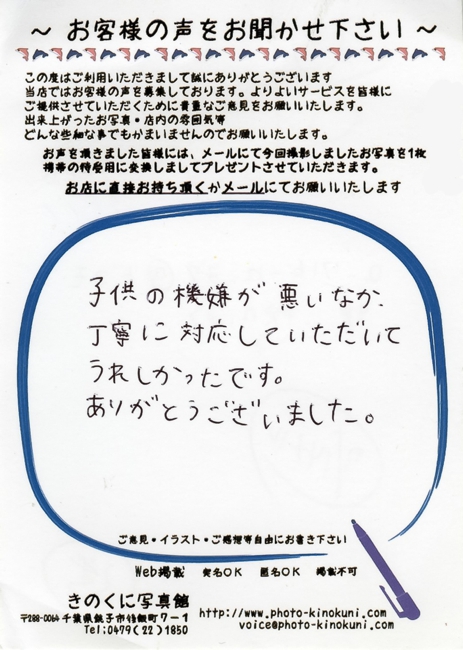 ～ お客様の声をお聞かせ下さい ～
この度はご利用いただきまして誠にありがとうございます
当店ではお客様の声を募集しております。よりよいサービスを皆様に
ご提供させていただくために貴重なご意見をお願いいたします。
出来上がったお写真・店内の雰囲気等
どんな些細な事でもかまいませんのでお願いいたします。
お声を頂きました皆様には、メールにて今回撮影しましたお写真を1枚
携帯の待受用に変換しましてプレゼントさせていただきます。
お店に直接お持ち頂くかメールにてお願いいたします
子供の機嫌が悪いなか、
丁寧に対応していただいて
うれしかったです。
ありがとうございました。
ご意見・イラスト・ご感想等自由にお書き下さい
Web掲載 実名OK 匿名OK 掲載不可
きのくに写真館
〒288-0064 千葉県銚子市 町7-1
Tel:0479(22)1850
http://www.photo-kinokuni.com
voice@photo-kinokuni.com